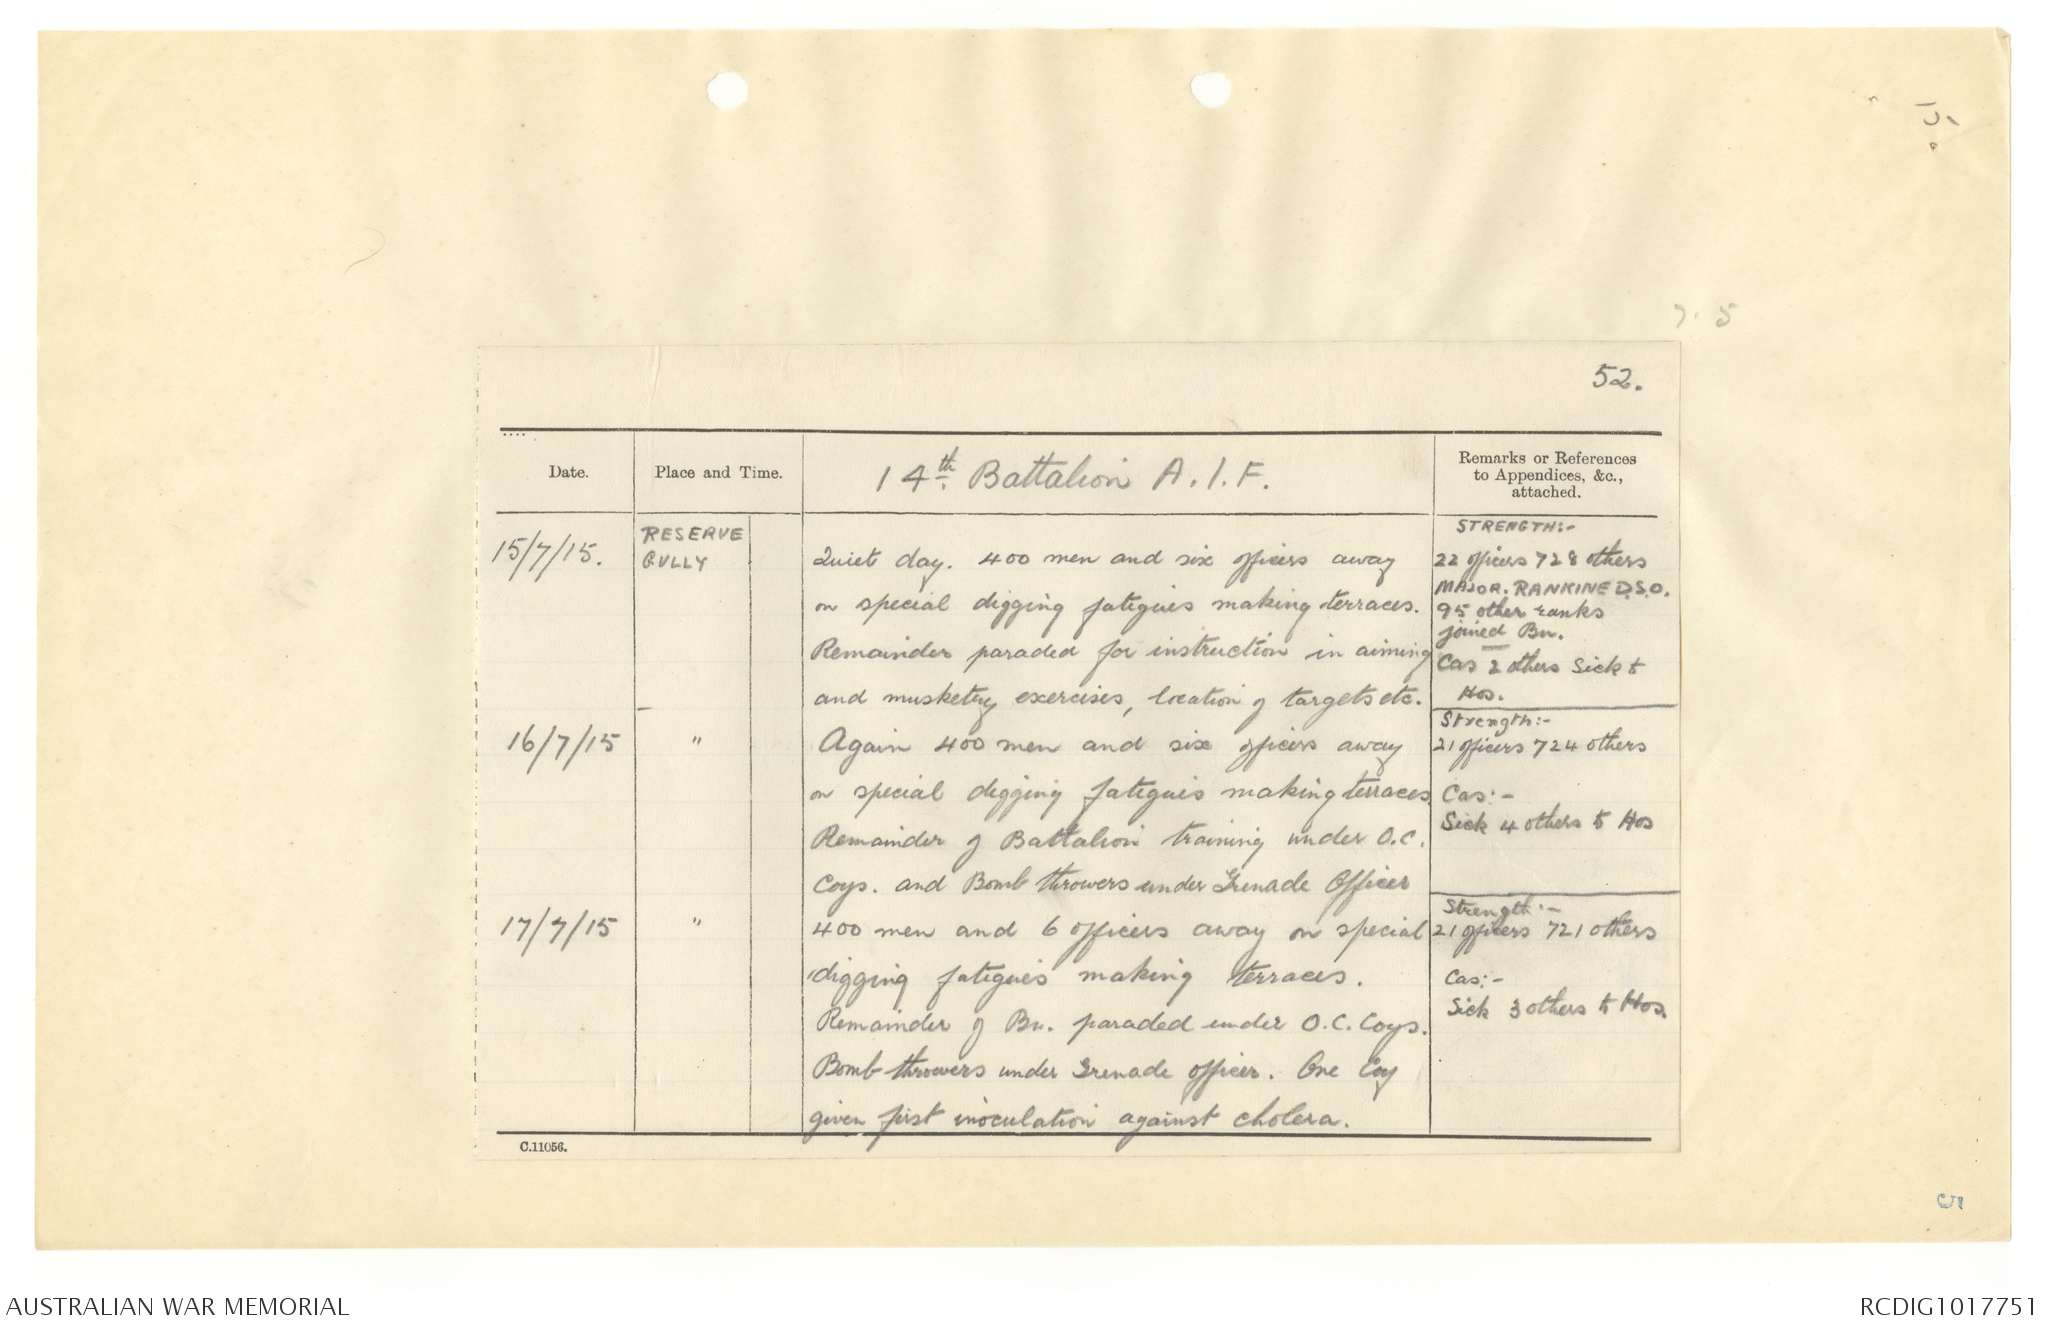 5.
7. 5
52.
Date.
Place and Time.
14th Battalion A.I.F.
Remarks or References
to Appendices, &c.,
attached.
15/7/15.
RESERVE
GULLY
Quiet day. 400 men and six officers away
on special digging fatigues making terraces.
Remainder paraded for instruction in aiming
and musketry exercises, location of targets etc.
STRENGTH:-
22 officers 728 others
MAJOR. RANKINE D.S.O.
95 other ranks
joined Bn.
Cas 2 others Sick to
Hos.
16/7/15
"
Again 400 men and six officers away
on special digging fatigues making terraces
Remainder of Battalion training under O.C.
Coys. and Bomb throwers under Grenade Officer
Strength:-
21 officers 724 others
Cas:-
Sick 4 others to Hos
17/7/15
"
400 men and 6 officers away on special
digging fatigues making terraces.
Remainder of Bn. paraded under O.C. Coys.
Bomb throwers under Grenade officer. One Coy
given first inoculation against cholera.
Strength:-
21 officers 721 others
Cas:-
Sick 3 others to Hos.
C.11056.
5
AUSTRALIAN WAR MEMORIAL
RCDIG1017751